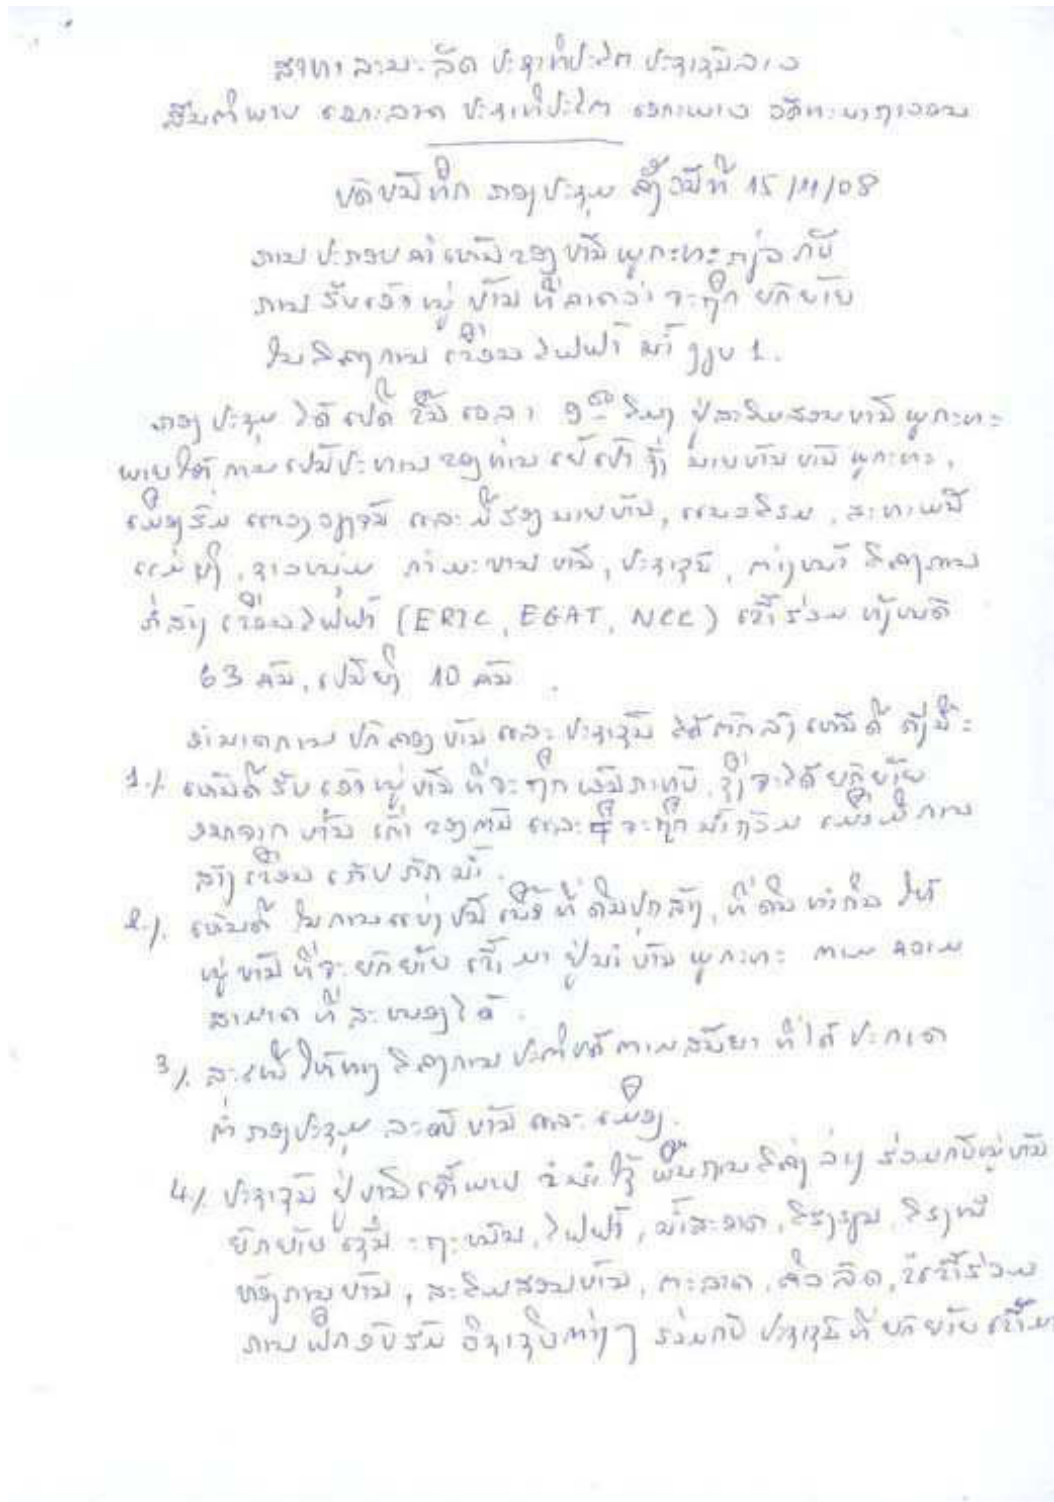 ສາທາລະນະລັດ ປະຊາທິປະໄຕ ປະຊາຊົນລາວ
ສັນຕິພາບ ເອກະລາດ ປະຊາທິປະໄຕ ເອກະພາບ ວັດທະນາຖາວອນ
ບົດບັນທຶກ ກອງປະຊຸມ ຄັ້ງວັນທີ 15/11/08
ການ ປະກອບຄຳເຫັນຂອງບ້ານພູກະທະກ່ຽວກັບ
ການ ຮັບເອົາໝູ່ບ້ານ ທີ່ຄາດວ່າ ຈະຖືກ ຍົກຍ້າຍ
ໃນໂຄງການ ເຂື່ອນໄຟຟ້າ ນ້ຳງຽບ 1.
ກອງປະຊຸມ ໄດ້ເປີດຂຶ້ນ ເວລາ 9 ໂມງ ຢູ່ສະໂມສອນບ້ານພູກະທະ
ພາຍໃຕ້ການເປັນປະທານຂອງທ່ານ ຊົ່ງ ນາຍບ້ານ ບ້ານພູກະທະ,
ເມືອງຮົ່ມ ແຂວງວຽງຈັນ ແລະ ມີຮອງນາຍບ້ານ, ແນວໂຮມ, ສະຫະພັນ
ແມ່ຍິງ, ຊາວໜຸ່ມ ກຳມະບານບ້ານ, ປະຊາຊົນ, ຕ່າງໜ້າ ໂຄງການ
ກໍ່ສ້າງ ເຂື່ອນໄຟຟ້າ (ERIC, EGAT, NCC) ເຂົ້າຮ່ວມ ທັງໝົດ
63 ຄົນ, ເປັນຍິງ 10 ຄົນ.
ອຳນາດການປົກຄອງບ້ານ ແລະ ປະຊາຊົນ ໄດ້ຕົກລົງເຫັນດີ ດັ່ງນີ້:
1./. ເຫັນດີຮັບເອົາໝູ່ບ້ານທີ່ຈະຖືກຜົນກະທົບ, ຊຶ່ງຈະໄດ້ຍົກຍ້າຍ
ອອກຈາກ ບ້ານເກົ່າຂອງຕົນ ແລະ ຈະຖືກນ້ຳຖ້ວມ ເມື່ອມີການ
ສ້າງເຂື່ອນເກັບກັກນ້ຳ.
2./. ເຫັນດີ ໃນການແບ່ງປັນ ເນື້ອທີ່ດິນປຸກສ້າງ, ທີ່ດິນທຳກິນ ໃຫ້
ໝູ່ບ້ານທີ່ຈະຍົກຍ້າຍ ເຂົ້າມາຢູ່ນຳບ້ານ ພູກະທະ ຕາມຄວາມ
ສາມາດທີ່ສະໜອງໄດ້.
3./. ສະເໜີໃຫ້ທາງໂຄງການ ປະຕິບັດຕາມສັນຍາ ທີ່ໄດ້ປະກາດ
ຕໍ່ກອງປະຊຸມ ລະດັບບ້ານ ແລະ ເມືອງ.
4./. ປະຊາຊົນ ຢູ່ບ້ານເຈົ້າພາບ ນຳໃຊ້ພື້ນຖານໂຄງລ່າງ ຮ່ວມກັບໝູ່ບ້ານ
ຍົກຍ້າຍ ເຊັ່ນ: ຖະໜົນ, ໄຟຟ້າ, ນ້ຳສະອາດ, ໂຮງຮຽນ, ໂຮງໝໍ
ຫ້ອງການບ້ານ, ສະໂມສອນບ້ານ, ຕະຫຼາດ, ຄິວລົດ, ເຂົ້າຮ່ວມ
ການຝຶກອົບຮົມ ວິຊາຊີບຕ່າງໆ ຮ່ວມກັບ ປະຊາຊົນທີ່ຍົກຍ້າຍເຂົ້າມາ